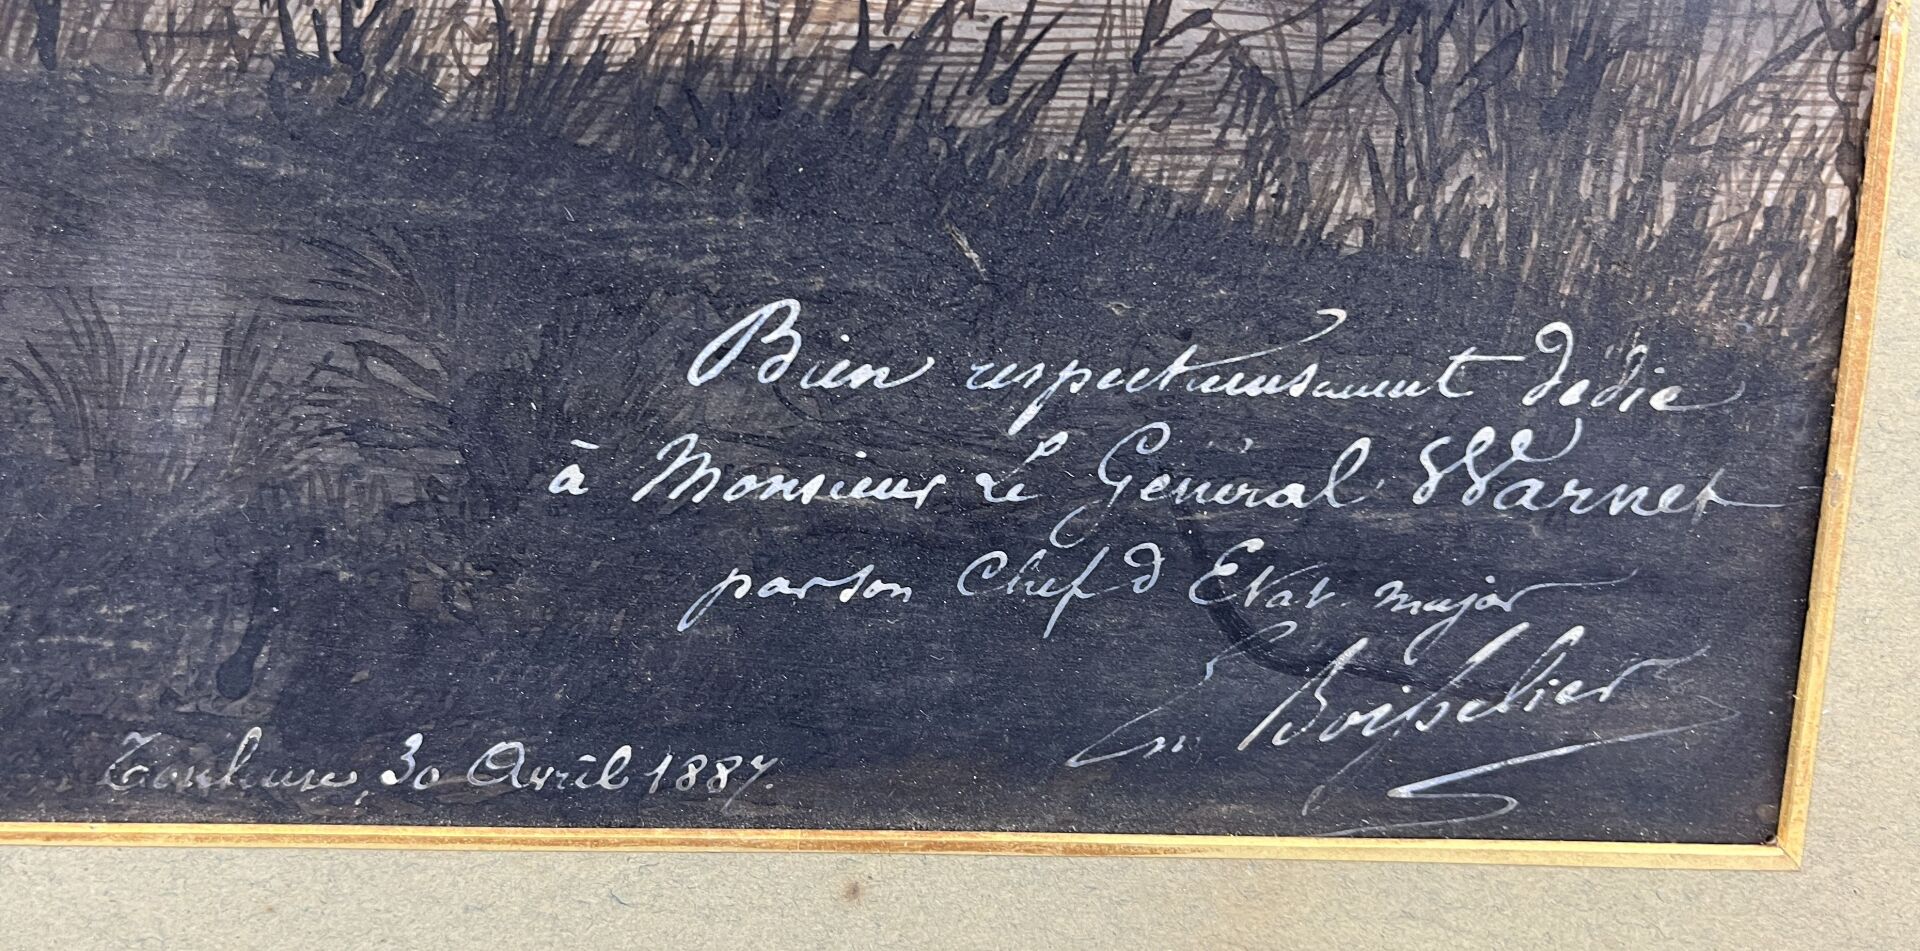 Bien respectueusement dédié
à Monsieur Le Général Warnet
par son Chef d Etat-major
Em Boisselier
Toulouse, 30 Avril 1887.